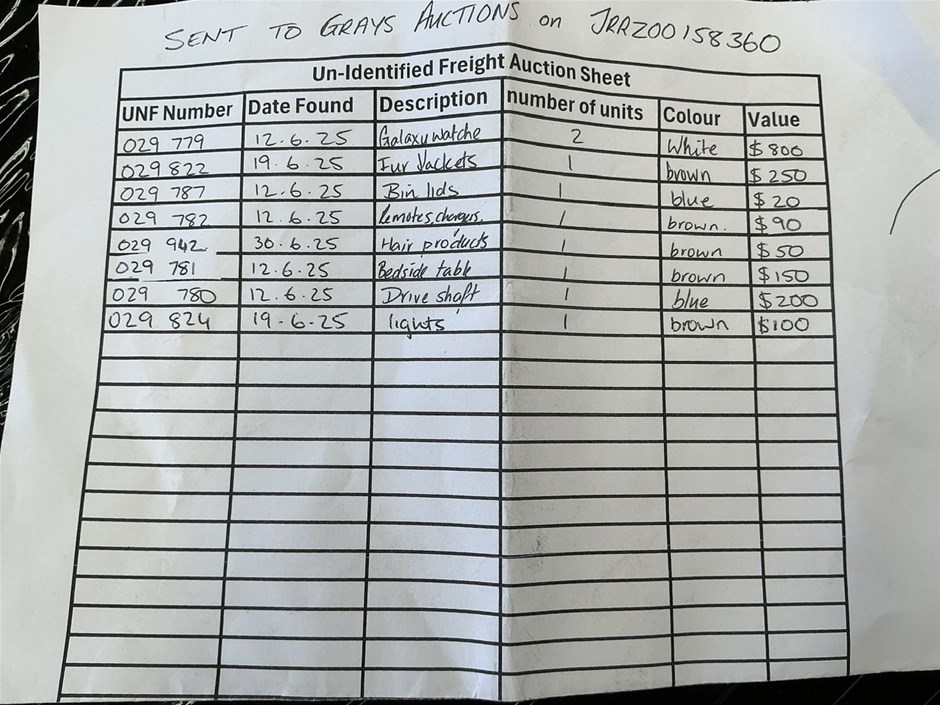 SENT TO GRAYS AUCTIONS on JRRZ00158360
Un-Identified Freight Auction Sheet
UNF Number Date Found Description number of units Colour Value
029 779 12.6.25 Galaxy watche 2 White $800
029 822 19.6.25 Fur Jackets 1 brown $250
029 787 12.6.25 Bin lids 1 blue $20
029 782 12.6.25 Remotes, chargers, 1 brown. $90
029 942 30.6.25 Hair products 1 brown $50
029 781 12.6.25 Bedside table 1 brown $150
029 780 12.6.25 Drive shaft 1 blue $200
029 824 19.6.25 lights 1 brown $100